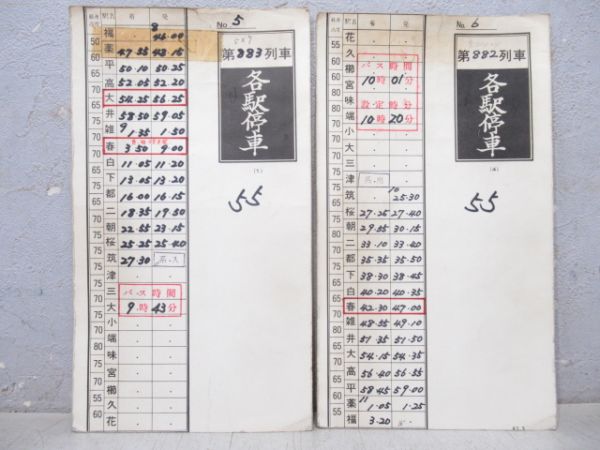 No 5
駅名 着 発
福 8 46.00
薬 47 55 48 15
平 50.10 50.25
高 52.05 52.20
大 54.25 56.25
井 58 50 59.05
雑 9 1 35 1.50
春 3 50 9.00
白 11.05 11.20
下 13.05 13.20
都 16.00 16.15
二 18.35 19.50
朝 22.55 23.15
桜 25.25 25.40
筑 27.30
津
三 バス時間
大 9時43分
小
端
味
宮
櫛
久
花
第883列車
各駅停車
(1)
55
No. 6
駅名 着 発
花
久
櫛 バス時間
宮 10時01分
味 設定時分
端 10時20分
小
大
三
津
筑 10 25.30
桜 27.25 27.40
朝 29.55 30.15
二 33.10 33.40
都 35.35 35.50
下 38.30 38.45
白 40.20 40.35
春 42.30 47.00
雑 48.55 49.10
井 51.35 51.50
大 54.15 54.35
高 56.40 56.55
平 58.45 59.00
薬 11 1.05 1.25
福 3.20
第882列車
各駅停車
55